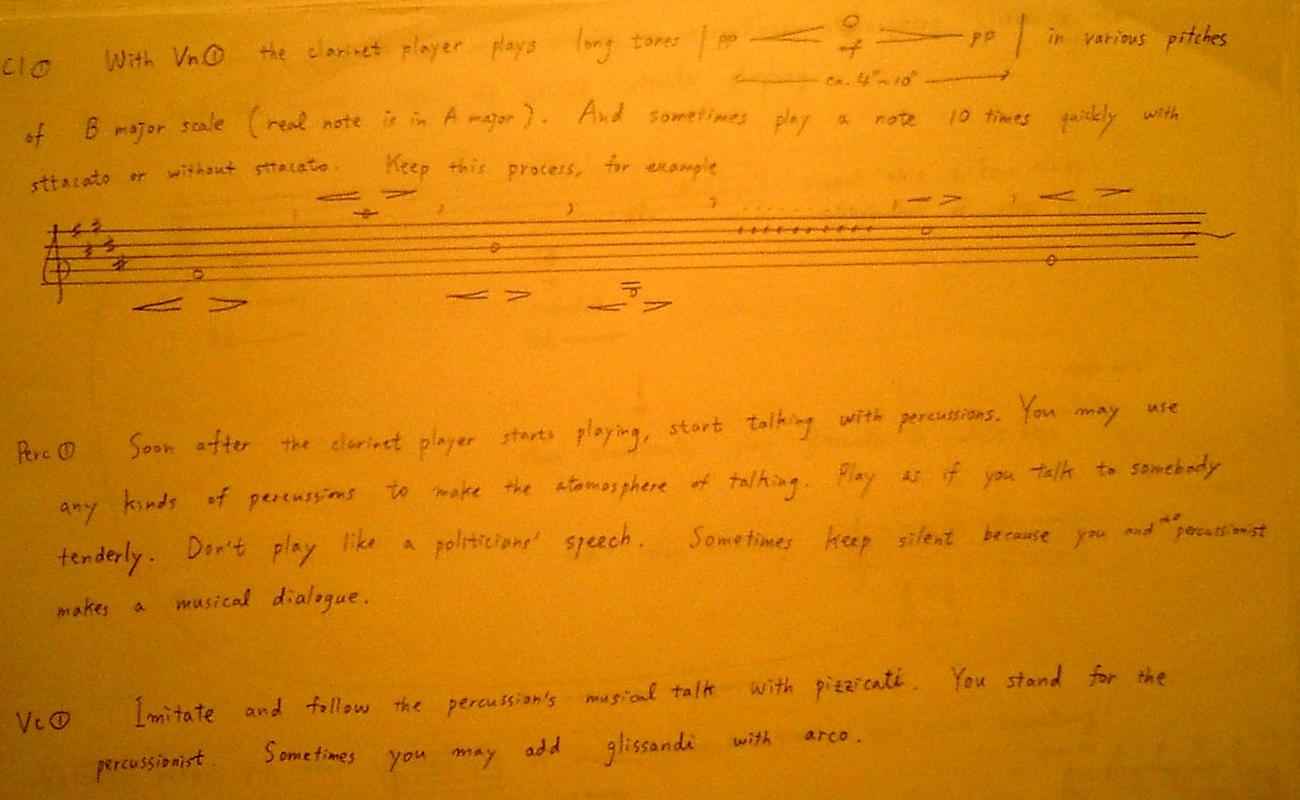 Cl① With Vn① the clarinet player plays long tones | pp mf pp | in various pitches
ca. 4"~10"
of B major scale (real note is in A major). And sometimes play a note 10 times quickly with
sttacato or without sttacato. Keep this process, for example
Perc① Soon after the clarinet player starts playing, start talking with percussions. You may use
any kinds of percussions to make the atomosphere of talking. Play as if you talk to somebody
tenderly. Don't play like a politicians' speech. Sometimes keep silent because you and percussionist
makes a musical dialogue.
Vc① Imitate and follow the percussion's musical talk with pizzicati. You stand for the
percussionist. Sometimes you may add glissandi with arco.